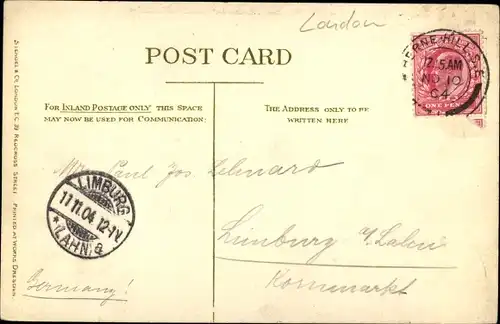 London
POST CARD
HERNE HILL. S.E.
12.15AM
NO 10
04
ONE PENNY
FOR INLAND POSTAGE ONLY THIS SPACE
MAY NOW BE USED FOR COMMUNICATION:
THE ADDRESS ONLY TO BE
WRITTEN HERE
Mr. Paul Jos. Lehnard
LIMBURG
11.11.04. 12-1V
*(LAHN)
Limburg a/Lahn
Kornmarkt
Germany!
STENGEL & Co. LONDON E.C. 39 REDCROSS STREET PRINTED AT WORKS DRESDEN